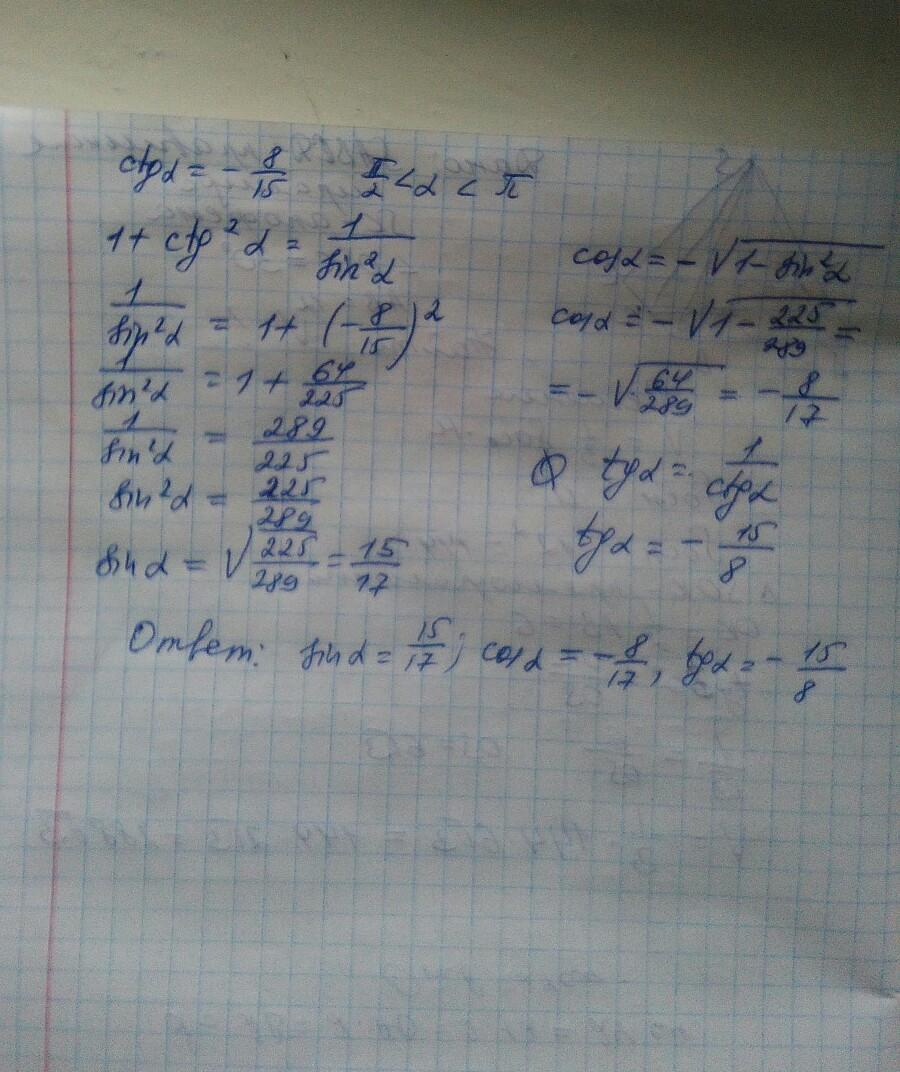 ctgα = - 8/15   π/2 < α < π
1 + ctg²α = 1/sin²α
1/sin²α = 1 + (- 8/15)²
1/sin²α = 1 + 64/225
1/sin²α = 289/225
sin²α = 225/289
sin α = √225/289 = 15/17
cosα = - √1 - sin²α
cosα = - √1 - 225/289 =
= - √64/289 = - 8/17
tgα = 1/ctgα
tgα = - 15/8
Ответ: sinα = 15/17; cosα = - 8/17, tgα = - 15/8